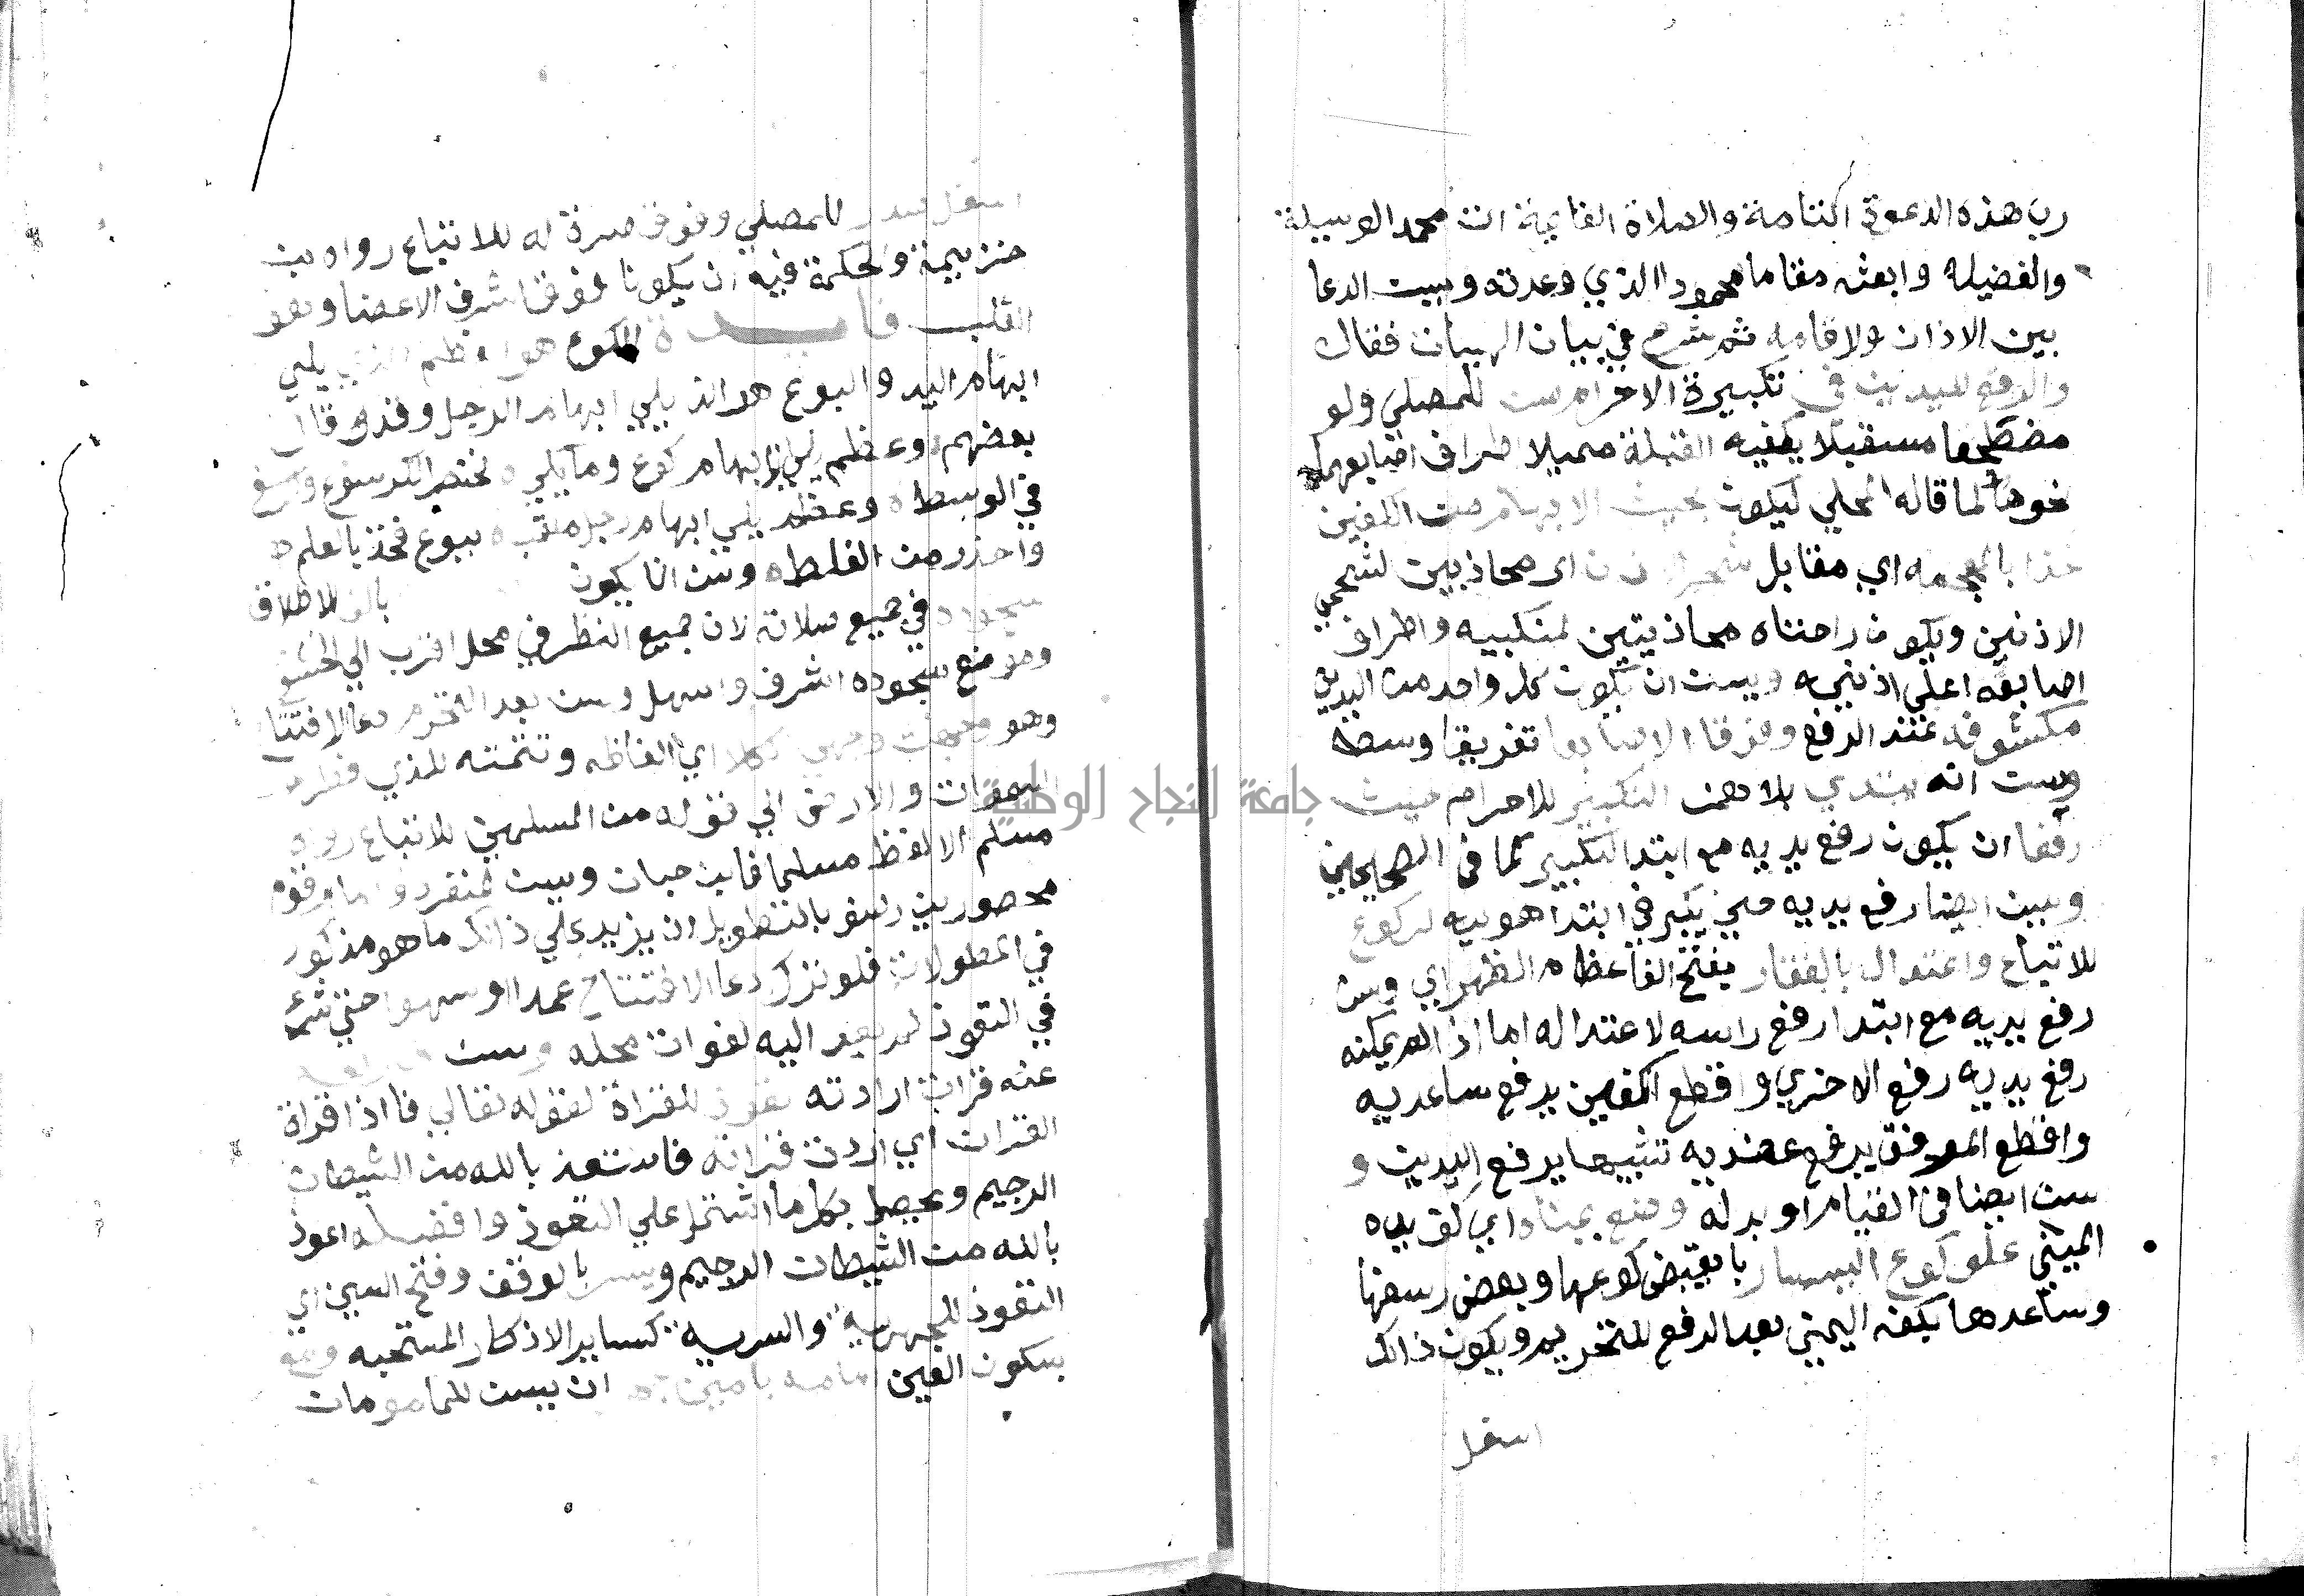 رب هذه الدعوة التامة والصلاة القايمة ات محمد الوسيلة
والفضيله وابعثه مقاما محمودا الذي وعدته ويسن الدعا
بين الاذان ولاقامه ثم شرع في بيان الهيات فقال
والرفع لليدين في تكبيرة الاحرام سن للمصلي ولو
مضطجعا مستقبلا بكفيه القبلة مميلا اطراف اصابعهما
نحوها لما قاله المحلي ليكون بحيث الابهام من الكفين
حذا بالمعجمه اي مقابل شحم اي محاذيين لشحمي
الاذنين ويكون راحتاه محاذيتين لمنكبيه واطراف
اصابعه اعلي اذنيه ويسن ان تكون كل واحد من اليدين
مكشوفه عند الرفع ومفرقا الاصابع تفريقا وسطا
ويسن انه يبتدي بلا همز التكبير للاحرام حيث
رفعا ان يكون رفع يديه مع ابتدا التكبير كما في الصحيحين
ويسن ايضا رفع يديه حين يكبر في ابتدا هويه لركوع
للاتباع واعتدال بالفقار بفتح الفا عظام الظهر اي ويسن
رفع يديه مع ابتدا رفع راسه لاعتداله اما اذا لم يمكنه
رفع يديه رفع الاخري واقطع الكفين يرفع ساعديه
واقطع المرفق يرفع عضديه تشبيها برفع اليدين و
سن ايضا في القيام او بدله وضع يمناه اي كف يده
اليمني علي كوع اليسار با يقبض كوعها وبعض رسغها
وساعدها بكفه اليمني بعد الرفع للتحريم ويكون ذالك
اسفل
اسفل صدر للمصلي وفوق صرة له للاتباع رواه بن
خزيمة والحكمة فيه ان يكونا فوق اشرف الاعضا وهو
القلب فايدة الكوع هو العظم الذي يلي
ابهام اليد والبوع هو الذ يلي ابهام الرجل وقد قال
بعضهم وعظم يلي الابهام كوع وما يلي ه لخنصر الكرسوع والرسغ
في الوسط ه وعظم يلي ابهام رجل ملقب ه ببوع فخذ بالعلم ه
واحذر من الغلط ه وسن انا يكون بالاطراق
سجوده في جميع صلاته لان جميع النظر في محل اقرب الي الخشوع
وموضع سجوده اشرف واسهل وسن بعد التحرم دعا الافتتاح
وهو وجهت وجهي كملا اي الفاظه وتتمته للذي فطر
السموات والارض الي قوله من المسلمين للاتباع رواه
مسلم الا لفظ مسلما فابن حبان ويسن لمنفرد وامام قوم
محصورين رضو بالتطويل ان يزيد علي ذالك ما هو مذكور
في المطولات فلو ترك دعا الافتتاح عمدا او سهوا حتي شرع
في التعوذ لم يعد اليه لفوات محله وسن
عند قران ارادته تعوذ للقراة لقوله تعالي فاذا قراة
القران اي اردت قرانه فاستعذ بالله من الشيطان
الرجيم ويحصل بكل ما اشتمل علي التعوذ وافضله اعوذ
بالله من الشيطان الرجيم ويسر بالوقف وفتح السين اي
التعوذ للجهرية والسرية كسايرالاذكار المستحبه ومع
بسكون العين امامه بامين ان يسن للماموم ان
جامعة النجاح الوطنية